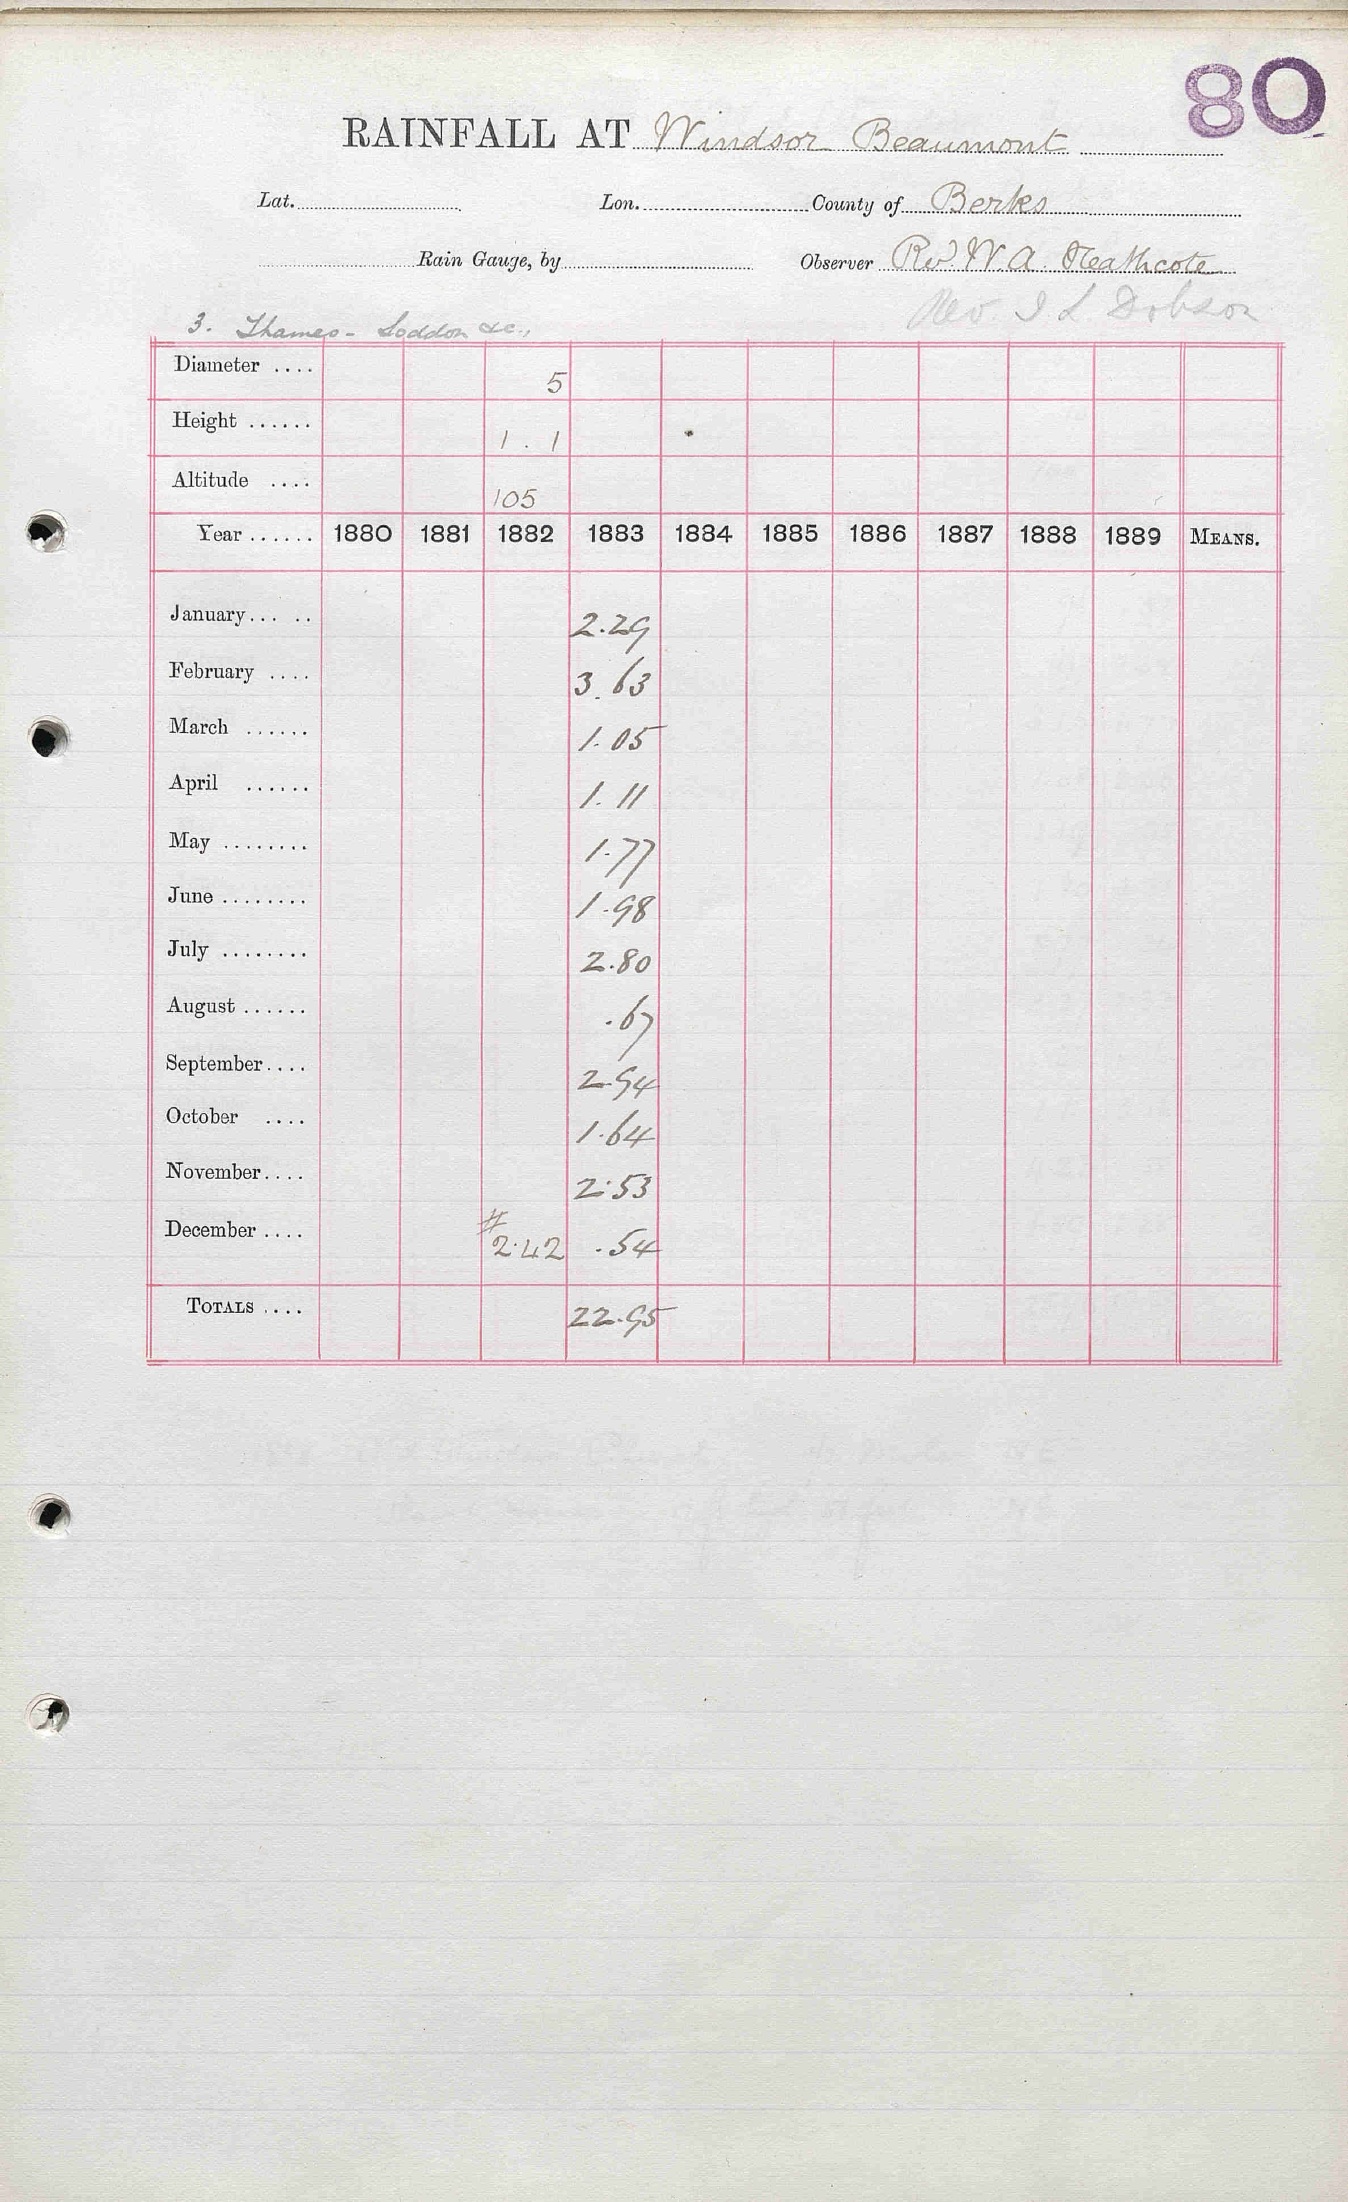 80
RAINFALL AT Windsor Beaumont
Lat. Lon. County of Berks
Rain Gauge, by Observer Revd W. A. Heathcote
Rev. I L Dobson
3. Thames - Loddon &c.,
Diameter .... 5
Height ...... 1 . 1
Altitude .... 105
Year ...... 1880 1881 1882 1883 1884 1885 1886 1887 1888 1889 MEANS.
January... .. 2.29
February .... 3.63
March ...... 1.05
April ...... 1.11
May ........ 1.77
June ........ 1.98
July ........ 2.80
August ...... .67
September.... 2.94
October .... 1.64
November.... 2.53
December .... # 2.42 .54
TOTALS .... 22.95